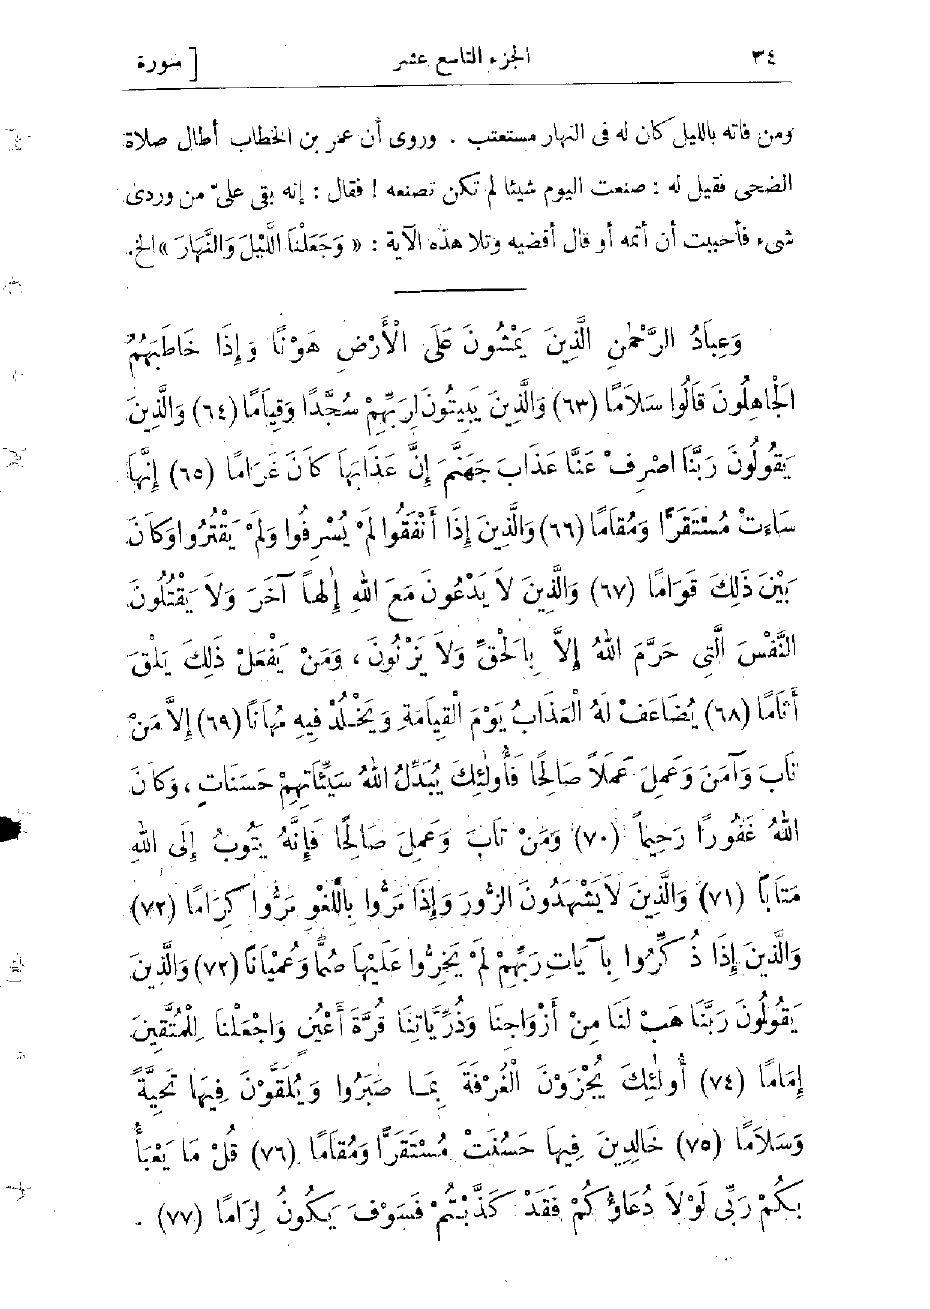 ٣٤ الجزء التاسع عشر [ سورة
ومن فاته بالليل كان له فى النهار مستعتب . وروى أن عمر بن الخطاب أطال صلاة
الضحى فقيل له : صنعت اليوم شيئا لم تكن تصنعه ! فقال : إنه بقى علىّ من وردى
شىء فأحببت أن أتمه أو قال أقضيه وتلا هذه الآية : « وَجَعَلْنَا اللَّيْلَ وَالنَّهَارَ » الخ.
وَعِبَادُ الرَّحْمٰنِ الَّذِينَ يَمْشُونَ عَلَى الْأَرْضِ هَوْنًا وَإِذَا خَاطَبَهُمُ
الْجَاهِلُونَ قَالُوا سَلَامًا (٦٣) وَالَّذِينَ يَبِيتُونَ لِرَبِّهِمْ سُجَّدًا وَقِيَامًا (٦٤) وَالَّذِينَ
يَقُولُونَ رَبَّنَا اصْرِفْ عَنَّا عَذَابَ جَهَنَّمَ إِنَّ عَذَابَهَا كَانَ غَرَامًا (٦٥) إِنَّهَا
سَاءَتْ مُسْتَقَرًّا وَمُقَامًا (٦٦) وَالَّذِينَ إِذَا أَنْفَقُوا لَمْ يُسْرِفُوا وَلَمْ يَقْتُرُوا وَكَانَ
بَيْنَ ذَلِكَ قَوَامًا (٦٧) وَالَّذِينَ لَا يَدْعُونَ مَعَ اللهِ إِلٰهًا آخَرَ وَلَا يَقْتُلُونَ
النَّفْسَ الَّتِى حَرَّمَ اللهُ إِلاَّ بِالْحَقِّ وَلَا يَزْنُونَ ، وَمَنْ يَفْعَلْ ذَلِكَ يَلْقَ
أَثَامًا (٦٨) يُضَاعَفْ لَهُ الْعَذَابُ يَوْمَ الْقِيَامَةِ وَيَخْلُدْ فِيهِ مُهَانًا (٦٩) إِلاَّ مَنْ
تَابَ وَآمَنَ وَعَمِلَ عَمَلاً صَالِحًا فَأُولٰئِكَ يُبَدِّلُ اللهُ سَيِّئَاتِهِمْ حَسَنَاتٍ ، وَكَانَ
اللهُ غَفُورًا رَحِيماً (٧٠) وَمَنْ تَابَ وَعَمِلَ صَالِحًا فَإِنَّهُ يَتُوبُ إِلَى اللهِ
مَتَابًا (٧١) وَالَّذِينَ لَا يَشْهَدُونَ الزُّورَ وَإِذَا مَرُّوا بِاللَّغْوِ مَرُّوا كِرَامًا (٧٢)
وَالَّذِينَ إِذَا ذُكِّرُوا بِآيَاتِ رَبِّهِمْ لَمْ يَخِرُّوا عَلَيْهَا صُمًّا وَعُمْيَانًا (٧٣) وَالَّذِينَ
يَقُولُونَ رَبَّنَا هَبْ لَنَا مِنْ أَزْوَاجِنَا وَذُرِّيَّاتِنَا قُرَّةَ أَعْيُنٍ وَاجْعَلْنَا لِلْمُتَّقِينَ
إِمَامًا (٧٤) أُولٰئِكَ يُجْزَوْنَ الْغُرْفَةَ بِمَا صَبَرُوا وَيُلَقَّوْنَ فِيهَا تَحِيَّةً
وَسَلَامًا (٧٥) خَالِدِينَ فِيهَا حَسُنَتْ مُسْتَقَرًّا وَمُقَامًا (٧٦) قُلْ مَا يَعْبَأُ
بِكُمْ رَبِّى لَوْلَا دُعَاؤُكُمْ فَقَدْ كَذَّبْتُمْ فَسَوْفَ يَكُونُ لِزَامًا (٧٧) .